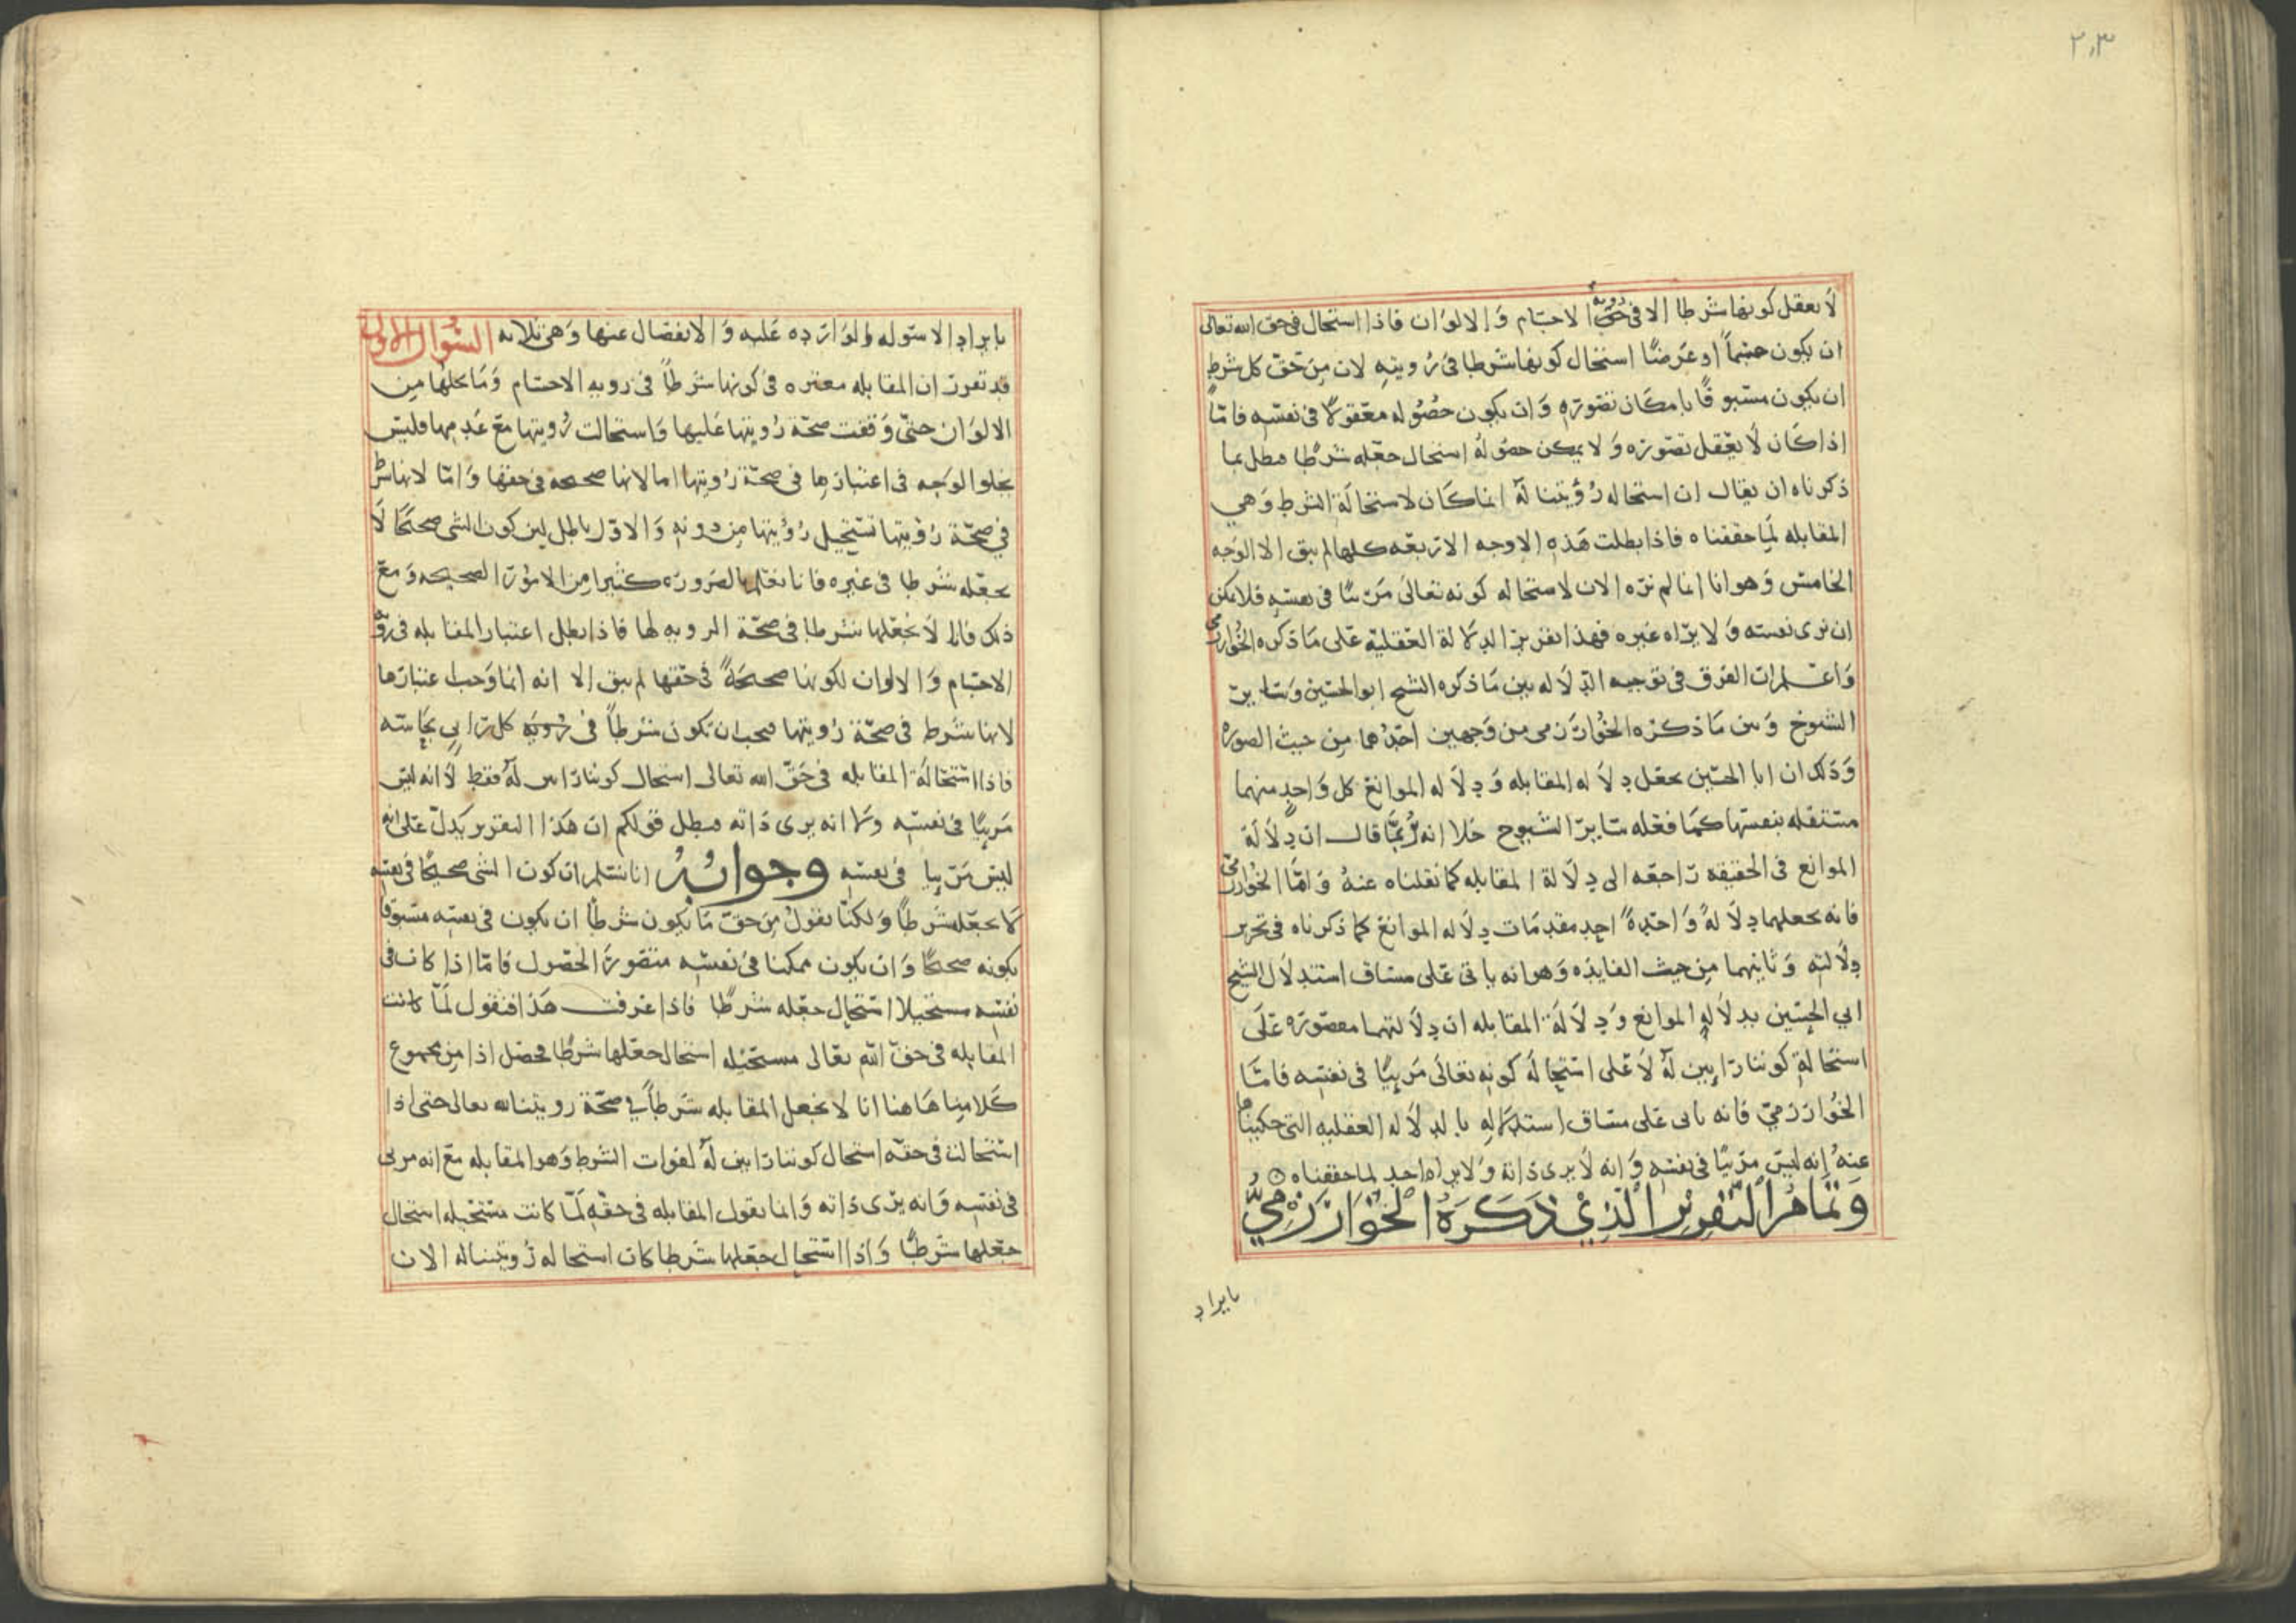 ٢٠٣
لا يعقل كونها شرطا الا فى حق رويه الاجسام والالوان فاذا استحال فى حق الله تعالى
ان يكون جسماً او عرضًا استحال كونها شرطا فى رويته لان من حق كل شرط
ان يكون مسبوقًا بامكان تصوره وان يكون حصوله معقولًا فى نفسه فامّا
اذا كان لا يعقل تصوره ولا يمكن حصوله استحال جعله شرطا فبطل بما
ذكرناه ان يقال ان استحاله رؤيتنا له انما كان لاستحالة الشرط وهي
المقابله لما حققناه فاذا بطلت هذه الاوجه الاربعه كلها لم يبق الا الوجه
الخامس وهو انا انما لم نره الان لاستحاله كونه تعالى مرئيًا فى نفسه فلا يمكن
ان يرى نفسه ولا يراه غيره فهذا تقرير الدلالة العقلية على ما ذكره الخوارزمى
واعلم ان الفرق فى توجيه الدلاله بين ما ذكره الشيخ ابو الحسين وساير
الشيوخ وبين ما ذكره الخوارزمى من وجهين احدهما من حيث الصوره
وذلك ان ابا الحسين جعل دلاله المقابله ودلاله الموانع كل واحد منهما
مستقله بنفسها كما فعله ساير الشيوخ خلا انه ربما قال ان دلالة
الموانع فى الحقيقه راجعه الى دلالة المقابله كما نقلناه عنه واما الخوارزمى
فانه جعلهما دلالةً واحدةً احد مقدمات دلاله الموانع كما ذكرناه فى تحرير
دلالته وثانيهما من حيث الفايده وهو انه ياتى على مساق استدلال الشيخ
ابي الحسين بدلاله الموانع ودلالة المقابله ان دلالتهما مقصوره على
استحالة كوننا رايين له لا على استحاله كونه تعالى مرييًا فى نفسه فامّا
الخوارزمي فانه ياتى على مساق استدلاله بالدلاله العقليه التى حكيناها
عنه انه ليس مرييًا فى نفسه وانه لا يرى ذاته ولا يراه احد لما حققناه
وتمام التقرير الذي ذكره الخوارزمي
بايراد
بايراد الاسوله الوارده عليه والانفصال عنها وهى ثلاثه السؤال الاول
قد تقرر ان المقابله معتبره فى كونها شرطاً فى رويه الاجسام وما يحلها من
الالوان حتى وقفت صحة رويتها عليها واستحالت رويتها مع عدمها فليس
يخلوا الوجه فى اعتبارها فى صحة رويتها اما لانها صحيحه فى حقها واما لانها شرط
فى صحة رؤيتها تستحيل رؤيتها من دونه والاول باطل لين كون الشى صحيحًا لا
يجعله شرطا فى غيره فانا نعلم بالضروره كثيرا من الامور الصحيحه ومع
ذلك فانا لا نجعلها شرطا فى صحة الرويه لها فاذا بطل اعتبار المقابله فى رويه
الاجسام والالوان لكونها صحيحةً فى حقها لم يبق الا انه انما وجب اعتبارها
لانها شرط فى صحة رويتها فيجب ان تكون شرطاً فى رؤيه كل رايي بحاسه
فاذا استحالة المقابله فى حق الله تعالى استحال كوننا رايين له فقط لا انه ليس
مرييًا فى نفسه ولا انه يرى ذاته فبطل قولكم ان هذا التقرير يدل على انه
ليس مرييا فى نفسه وجوابه انا نسلم ان كون الشى صحيحًا فى نفسه
لا يجعله شرطاً ولكنا نقول من حق ما يكون شرطًا ان يكون فى نفسه مسبوقا
بكونه صحيحًا وان يكون ممكنا فى نفسه متصور الحصول فامّا اذا كان فى
نفسه مستحيلا استحال جعله شرطًا فاذا عرفت هذا فنقول لمّا كانت
المقابله فى حق الله تعالى مستحيله استحال جعلها شرطًا فحصل اذا من مجموع
كلامنا هاهنا انا لا نجعل المقابله شرطاً في صحة رويتنا له تعالى حتى اذا
استحالت فى حقه استحال كوننا رايين له لفوات الشرط وهو المقابله مع انه مرى
فى نفسه وانه يرى ذاته وانما نقول المقابله فى حقه لمّا كانت مستحيله استحال
جعلها شرطًا واذا استحال جعلها شرطا كان استحاله رويتنا له الان